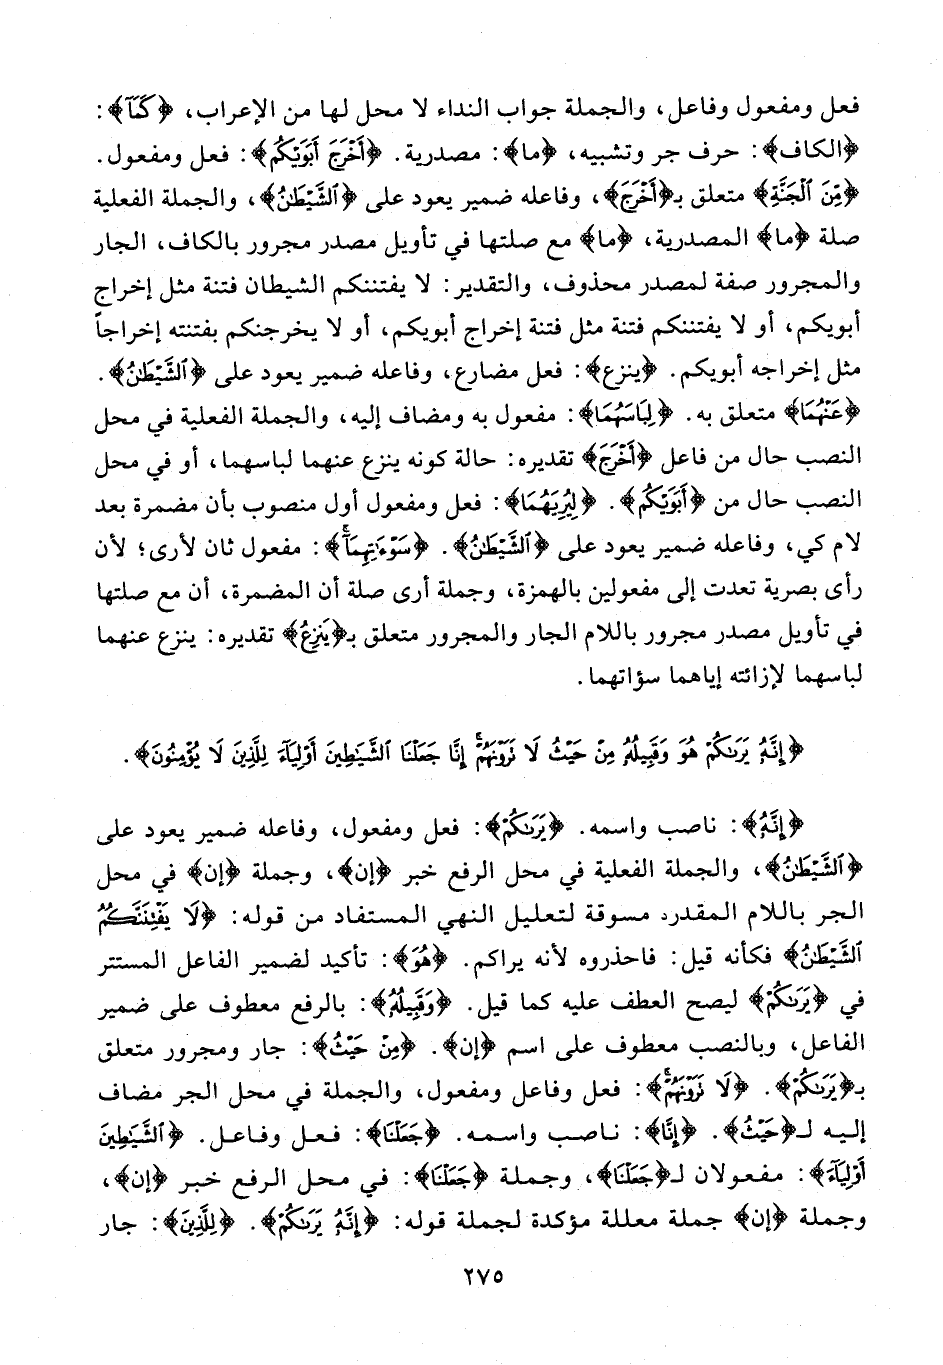 فعل ومفعول وفاعل، والجملة جواب النداء لا محل لها من الإعراب، ﴿كَمَآ﴾:
﴿الكاف﴾: حرف جر وتشبيه، ﴿ما﴾: مصدرية. ﴿أَخْرَجَ أَبَوَيْكُم﴾: فعل ومفعول.
﴿مِّنَ ٱلْجَنَّةِ﴾ متعلق بـ﴿أَخْرَجَ﴾، وفاعله ضمير يعود على ﴿ٱلشَّيْطَٰنُ﴾، والجملة الفعلية
صلة ﴿ما﴾ المصدرية، ﴿ما﴾ مع صلتها في تأويل مصدر مجرور بالكاف، الجار
والمجرور صفة لمصدر محذوف، والتقدير: لا يفتننكم الشيطان فتنة مثل إخراج
أبويكم، أو لا يفتننكم فتنة مثل فتنة إخراج أبويكم، أو لا يخرجنكم بفتنته إخراجاً
مثل إخراجه أبويكم. ﴿ينزع﴾: فعل مضارع، وفاعله ضمير يعود على ﴿ٱلشَّيْطَٰنُ﴾.
﴿عَنْهُمَا﴾ متعلق به. ﴿لِبَاسَهُمَا﴾: مفعول به ومضاف إليه، والجملة الفعلية في محل
النصب حال من فاعل ﴿أَخْرَجَ﴾ تقديره: حالة كونه ينزع عنهما لباسهما، أو في محل
النصب حال من ﴿أَبَوَيْكُم﴾. ﴿لِيُرِيَهُمَا﴾: فعل ومفعول أول منصوب بأن مضمرة بعد
لام كي، وفاعله ضمير يعود على ﴿ٱلشَّيْطَٰنُ﴾. ﴿سَوْءَٰتِهِمَآۚ﴾: مفعول ثان لأرى؛ لأن
رأى بصرية تعدت إلى مفعولين بالهمزة، وجملة أرى صلة أن المضمرة، أن مع صلتها
في تأويل مصدر مجرور باللام الجار والمجرور متعلق بـ﴿يَنزِعُ﴾ تقديره: ينزع عنهما
لباسهما لإزائته إياهما سؤاتهما.
﴿إِنَّهُۥ يَرَىٰكُمْ هُوَ وَقَبِيلُهُۥ مِنْ حَيْثُ لَا تَرَوْنَهُمْۗ إِنَّا جَعَلْنَا ٱلشَّيَٰطِينَ أَوْلِيَآءَ لِلَّذِينَ لَا يُؤْمِنُونَ﴾.
﴿إِنَّهُۥ﴾: ناصب واسمه. ﴿يَرَىٰكُمْ﴾: فعل ومفعول، وفاعله ضمير يعود على
﴿ٱلشَّيْطَٰنُ﴾، والجملة الفعلية في محل الرفع خبر ﴿إن﴾، وجملة ﴿إن﴾ في محل
الجر باللام المقدرد مسوقة لتعليل النهي المستفاد من قوله: ﴿لَا يَفْتِنَنَّكُمُ
ٱلشَّيْطَٰنُ﴾ فكأنه قيل: فاحذروه لأنه يراكم. ﴿هُوَ﴾: تأكيد لضمير الفاعل المستتر
في ﴿يَرَىٰكُمْ﴾ ليصح العطف عليه كما قيل. ﴿وَقَبِيلُهُۥ﴾: بالرفع معطوف على ضمير
الفاعل، وبالنصب معطوف على اسم ﴿إن﴾. ﴿مِنْ حَيْثُ﴾: جار ومجرور متعلق
بـ﴿يَرَىٰكُمْ﴾. ﴿لَا تَرَوْنَهُمْۗ﴾: فعل وفاعل ومفعول، والجملة في محل الجر مضاف
إليه لـ﴿حَيْثُ﴾. ﴿إِنَّا﴾: ناصب واسمه. ﴿جَعَلْنَا﴾: فعل وفاعل. ﴿ٱلشَّيَٰطِينَ
أَوْلِيَآءَ﴾: مفعولان لـ﴿جَعَلْنَا﴾، وجملة ﴿جَعَلْنَا﴾: في محل الرفع خبر ﴿إن﴾،
وجملة ﴿إن﴾ جملة معللة مؤكدة لجملة قوله: ﴿إِنَّهُۥ يَرَىٰكُمْ﴾. ﴿لِلَّذِينَ﴾: جار
٢٧٥